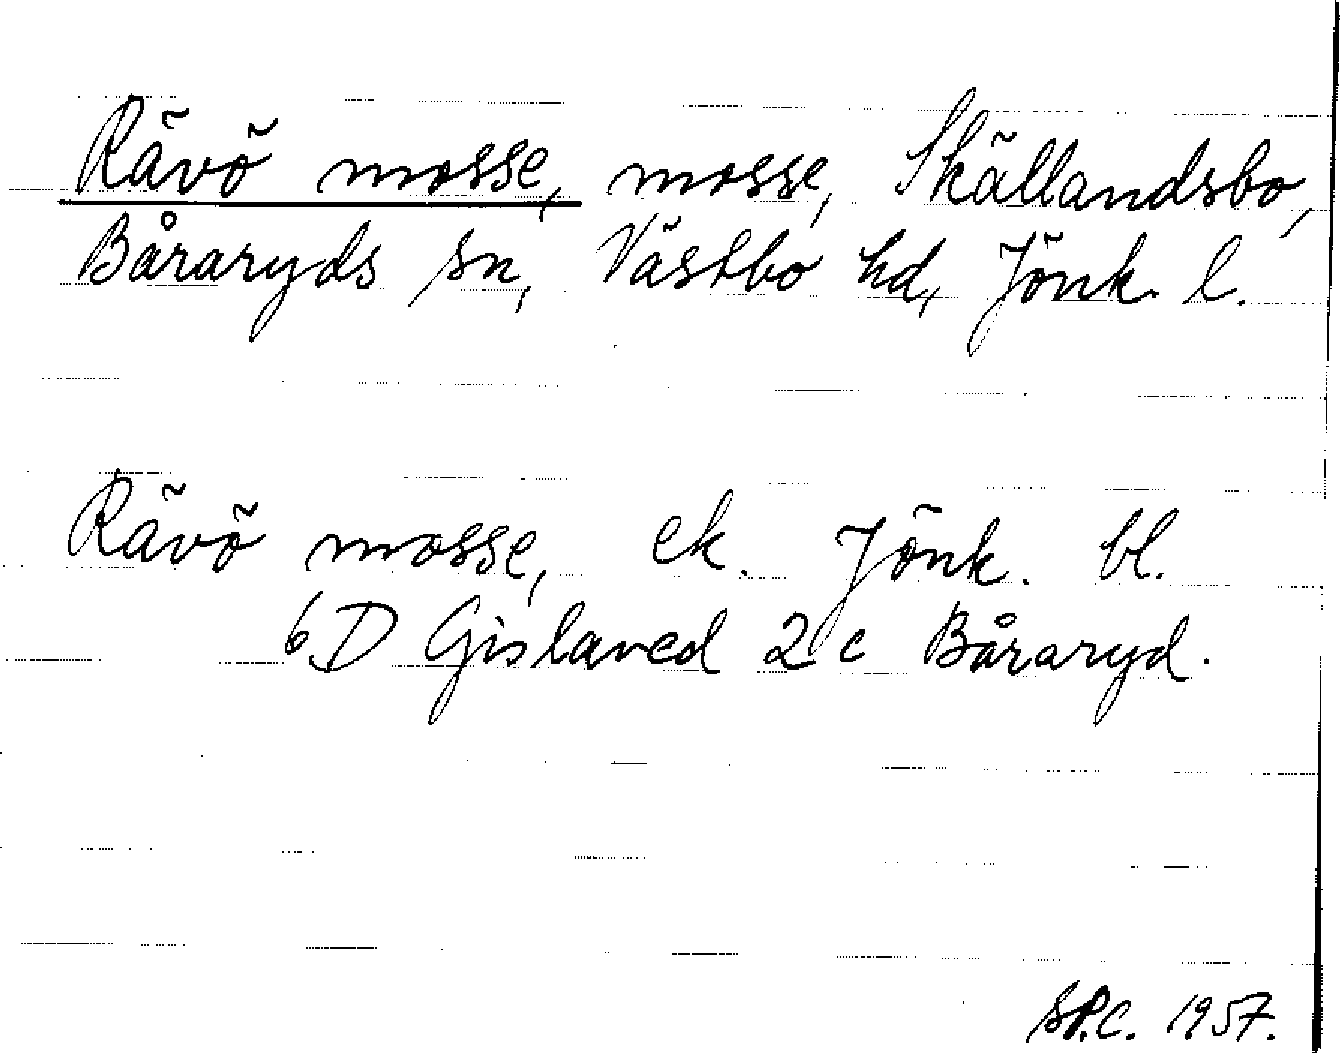 Rävö mosse, mosse, Skällandsbo,
Båraryds sn, Västbo hd, Jönk. l.
Rävö mosse, ek. Jönk. bl.
6D Gislaved 2c Båraryd.
S.P.C. 1957.